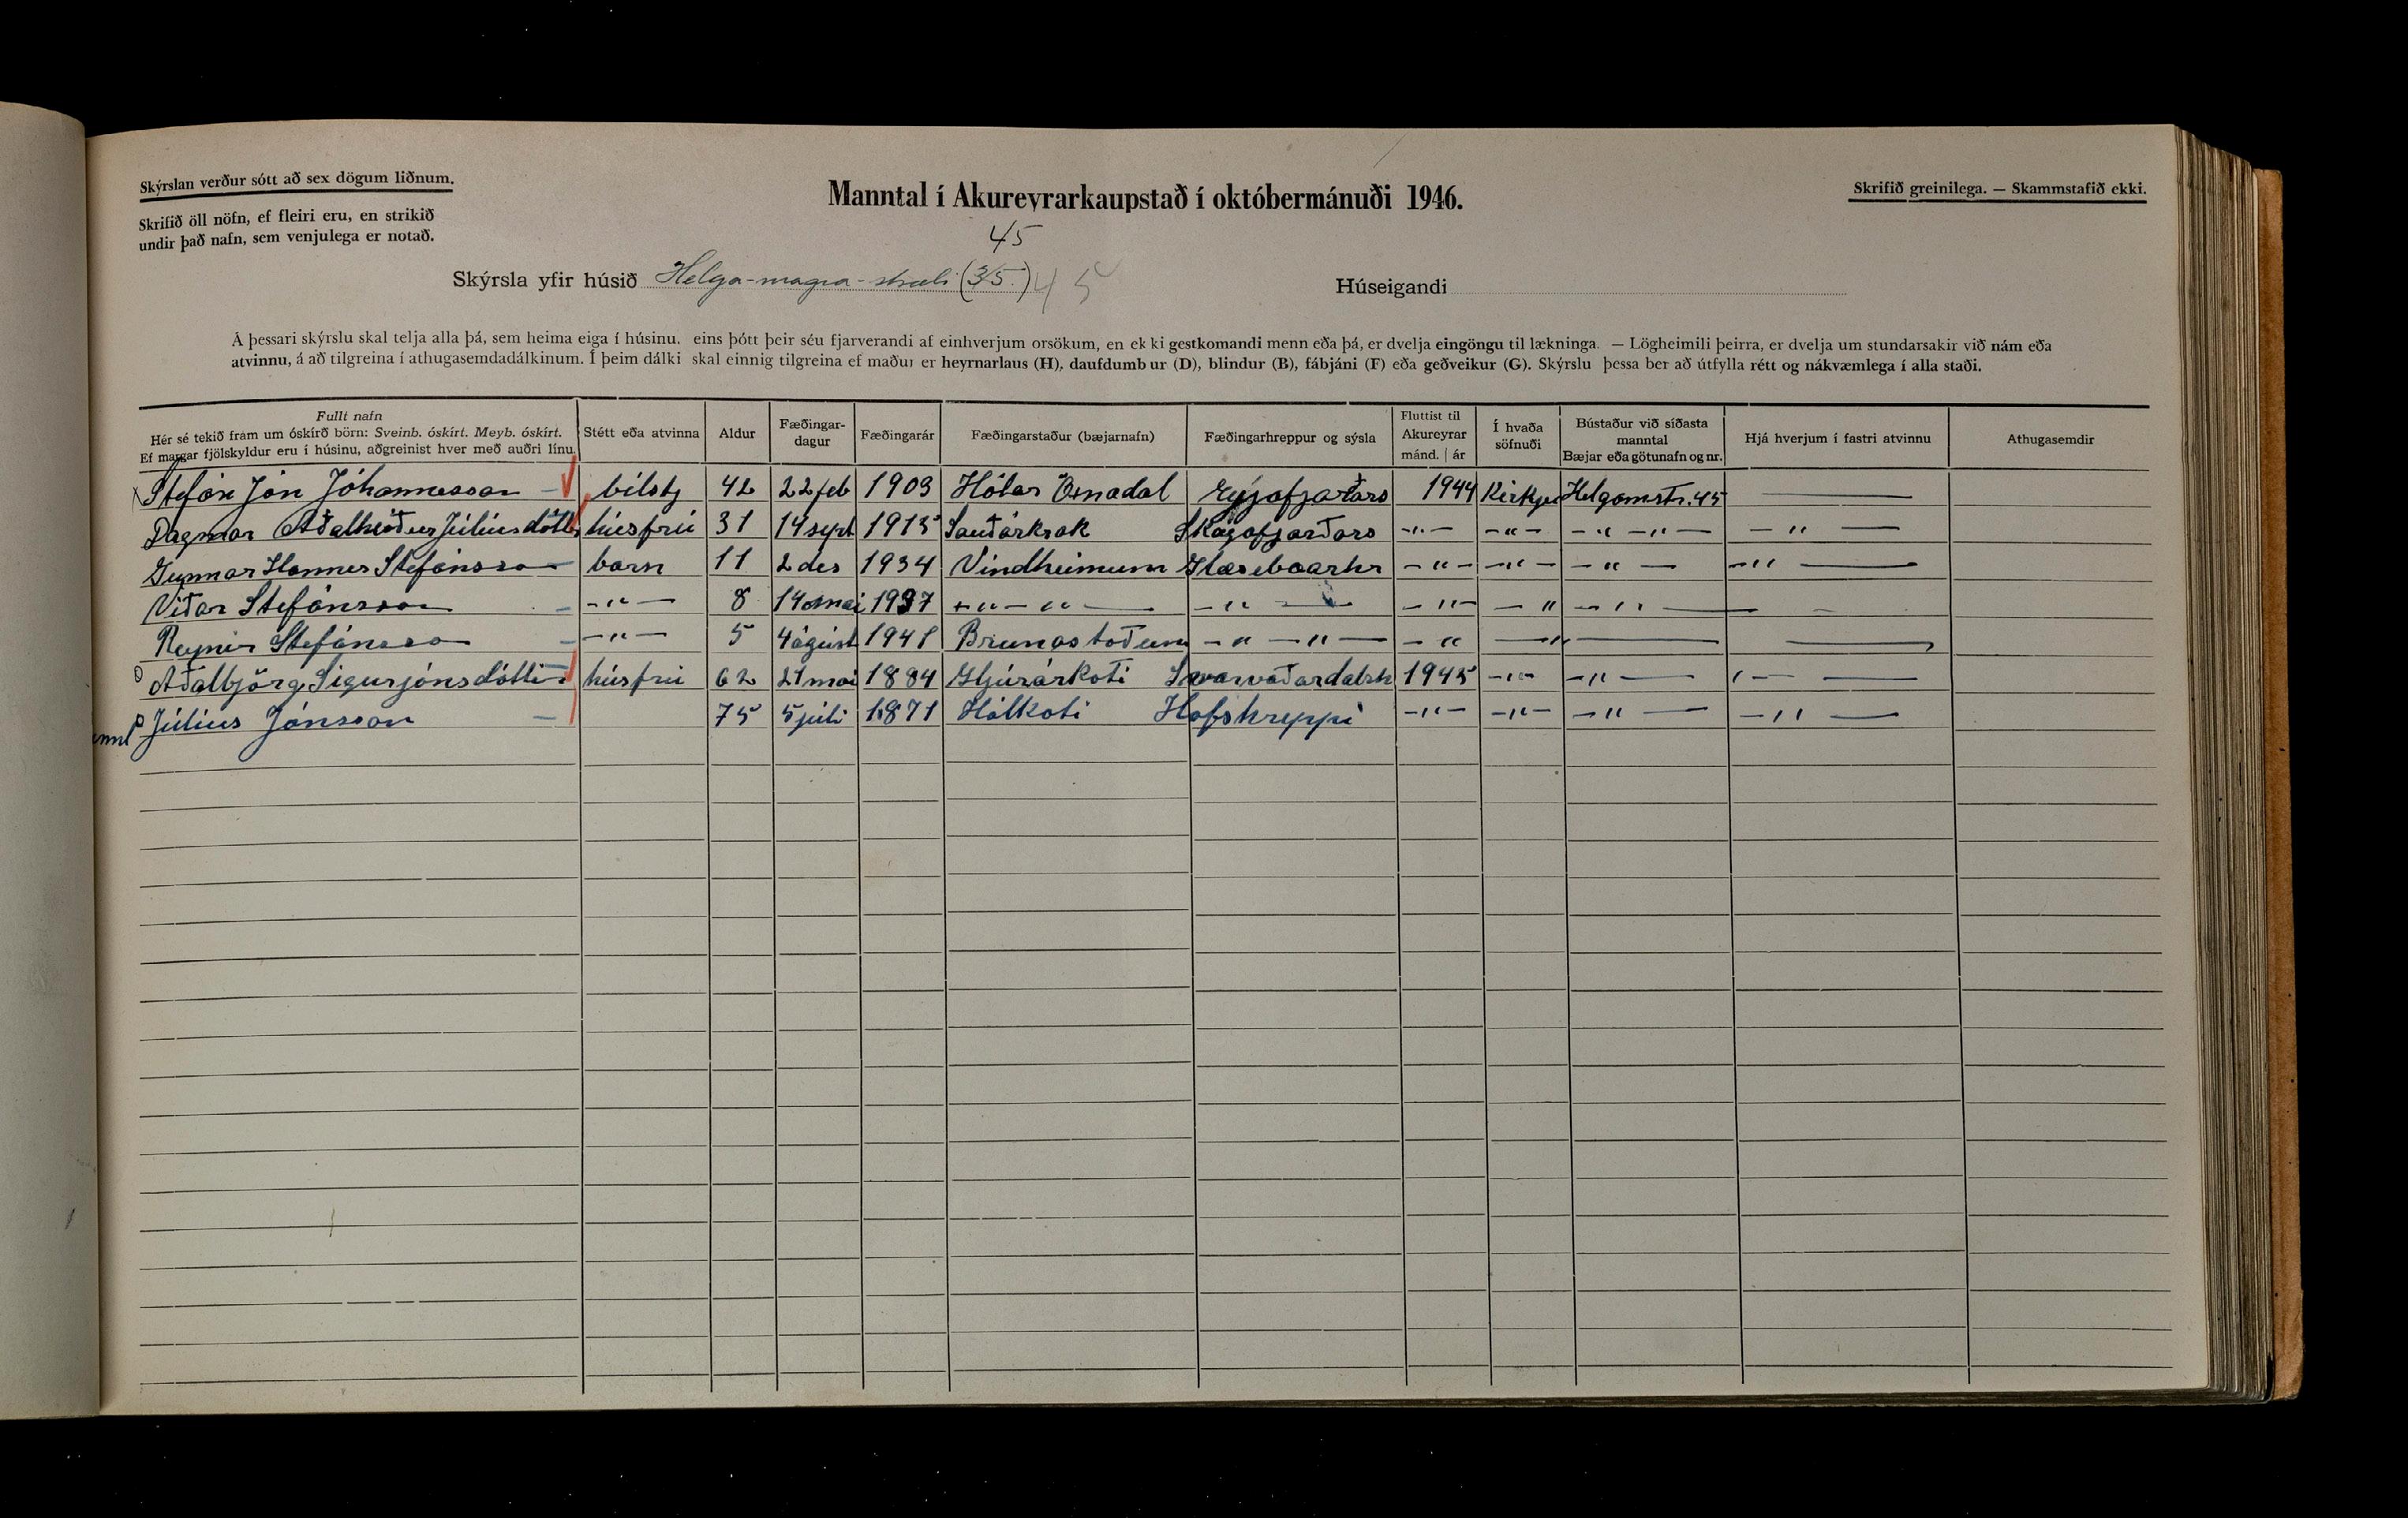 Skýrslan verður sótt að sex dögum liðnum.
Manntal í Akureyrarkaupstað í októbermánuði 1946.
Skrifið greinilega. — Skammstafið ekki.
Skrifið öll nöfn, ef fleiri eru, en strikið
undir það nafn, sem venjulega er notað.
45
Skýrsla yfir húsið Helga-magra-stræti (3/5.) 45 Húseigandi
Á þessari skýrslu skal telja alla þá, sem heima eiga í húsinu, eins þótt þeir séu fjarverandi af einhverjum orsökum, en ekki gestkomandi menn eða þá, er dvelja eingöngu til lækninga. — Lögheimili þeirra, er dvelja um stundarsakir við nám eða
atvinnu, á að tilgreina í athugasemdadálkinum. Í þeim dálki skal einnig tilgreina ef maður er heyrnarlaus (H), daufdumbur (D), blindur (B), fábjáni (F) eða geðveikur (G). Skýrslu þessa ber að útfylla rétt og nákvæmlega í alla staði.
Fullt nafn
Hér sé tekið fram um óskírð börn: Sveinb. óskírt. Meyb. óskírt.
Ef margar fjölskyldur eru í húsinu, aðgreinist hver með auðri línu.
Stétt eða atvinna
Aldur
Fæðingar-
dagur
Fæðingarár
Fæðingarstaður (bæjarnafn)
Fæðingarhreppur og sýsla
Fluttist til
Akureyrar
mánd. | ár
Í hvaða
söfnuði
Bústaður við síðasta
manntal
Bæjar eða götunafn og nr.
Hjá hverjum í fastri atvinnu
Athugasemdir
Stefán Jón Jóhannesson bílstj 42 22 feb 1903 Hólar Öxnadal Eyjafjarðars 1944 Kirkju Helgamstr. 45 —
Dagmar Aðalheiður Júlíusdóttir húsfrú 31 14 sept 1915 Sauðárkrak Skagafjarðars -"- -"- -"- -"- -"-
Gunnar Hannes Stefánsson barn 11 2 des 1934 Vindheimum Glæsibæarhr -"- -"- -"- -"-
Viðar Stefánsson -"- 8 14 mai 1937 -"-"- -"- -"- -"- -"-
Reynir Stefánsson -"- 5 4 ágúst 1941 Brunastoðum -"-"- -"- -"-
Aðalbjörg Sigurjónsdóttir húsfrú 62 21 mai 1884 Gljúrárkoti Svarvaðardalsh 1945 -"- -"- -"-
Júlíus Jónsson 75 5 júli 1871 Hálkoti Hofshreppi -"- -"- -"- -"-